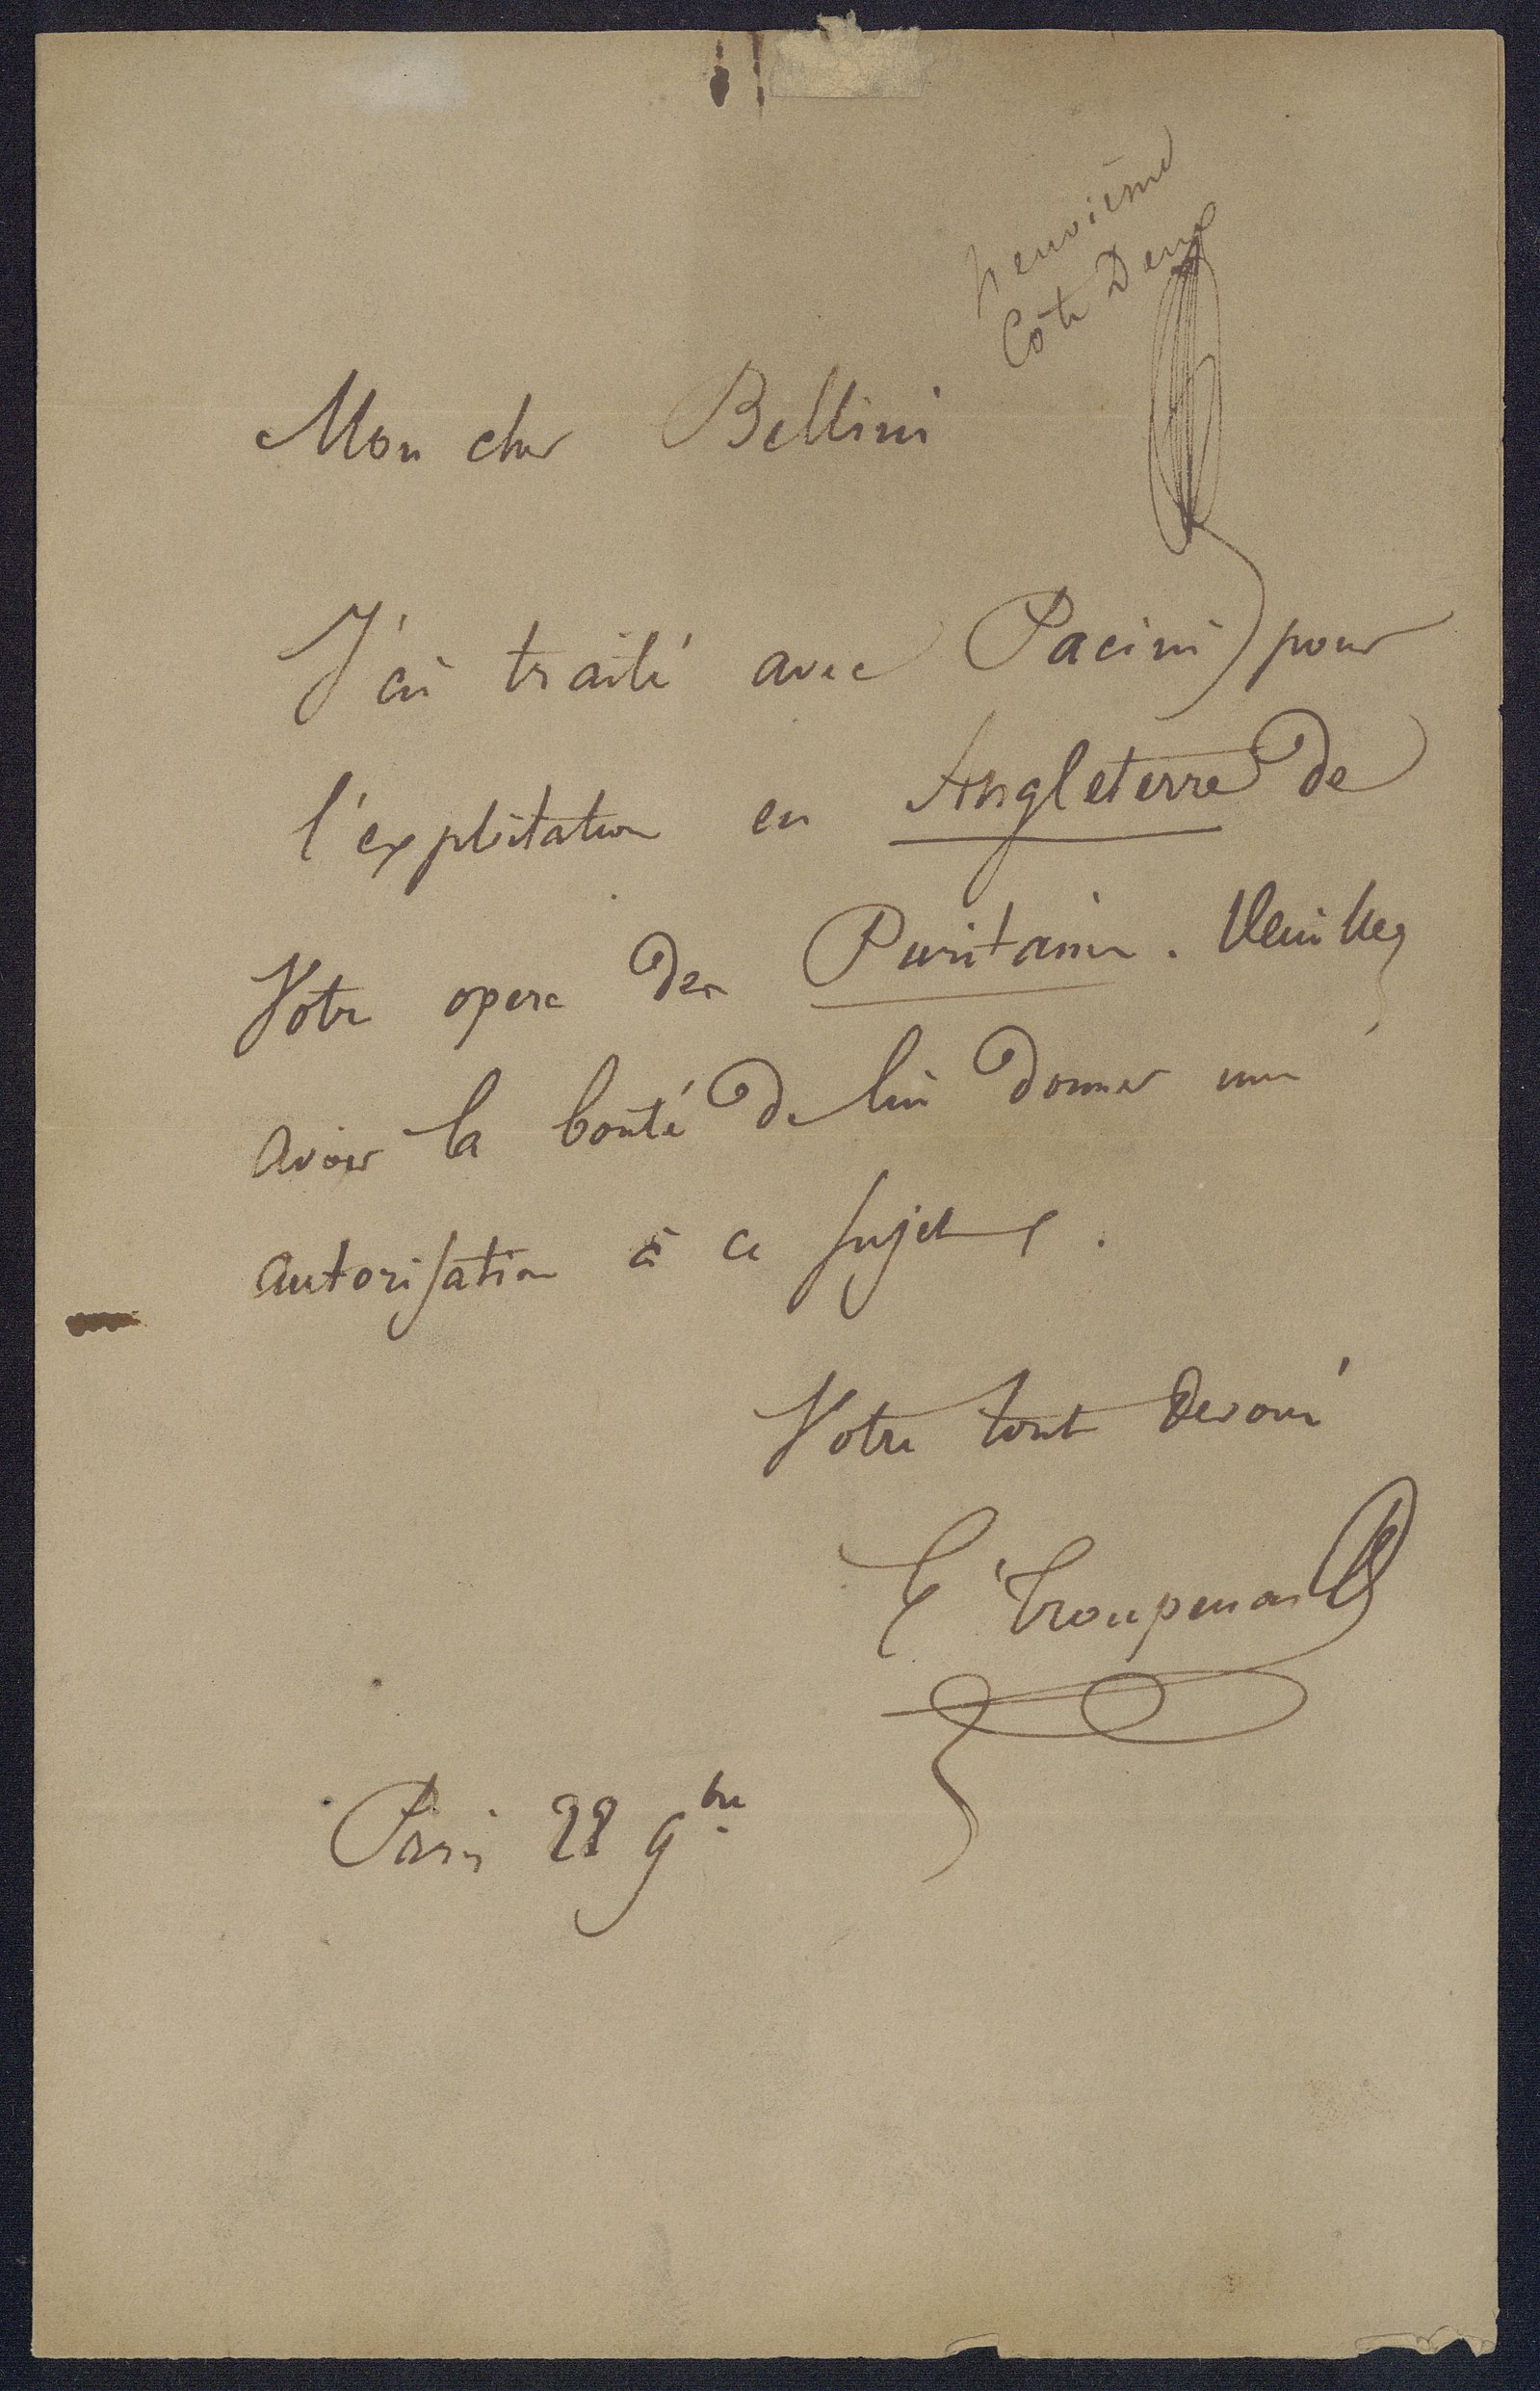 neuvième
Cote Deux
Mon cher Bellini
J'ai traité avec Pacini pour
l'exploitation en Angleterre de
Votre opera des Puritains. Veuillez
avoir la bonté de lui donner une
autorisation à ce sujet.
Votre tout devoué
E Troupenas
Paris 28 9bre